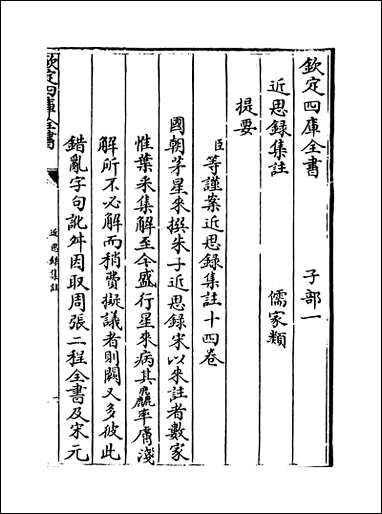 欽定四庫全書
子部一
近思録集註
儒家類
提要
臣等謹案近思録集註十四卷
國朝茅星來撰朱子近思録宋以來註者數家
惟葉采集解至今盛行星來病其麤率膚淺
解所不必解而稍費擬議者則闕又多彼此
錯亂字句訛舛因取周張二程全書及宋元
欽定四庫全書
近思録集註